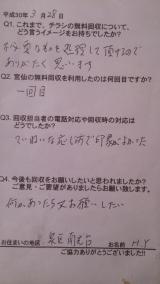 平成30年3月28日
Q1. これまで、チラシの無料回収について、
どう言うイメージをお持ちでしたか？
不必要な物を処理して頂けるので
ありがたく思います
Q2. 宮仙の無料回収を利用したのは何回目ですか？
一回目
Q3. 回収担当者の電話対応や回収時の対応は
どうでしたか？
ていねいな応対で印象がよかった
Q4. 今後も回収をお願いしたいと思われましたか？
ご意見・ご要望がありましたらお願い致します。
何かあったら又お願いしたい
お住まいの地域：泉区南光台
お名前 H.Y
ご協力ありがとうございました!!